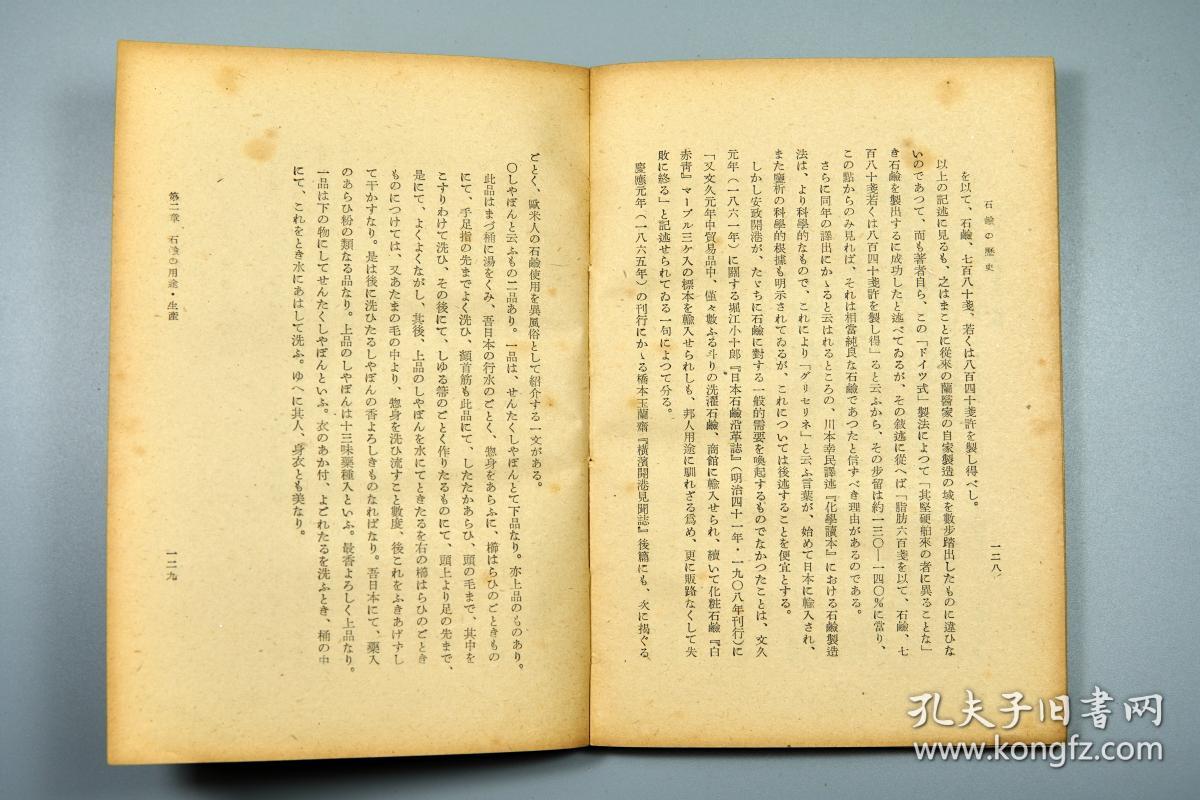 石鹼の歷史
一二八
を以て、石鹼、七百八十戔、若くは八百四十戔許を製し得べし。
以上の記述に見るも、之はまことに從來の蘭醫家の自家製造の域を數步踏出したものに違ひな
いのであつて、而も著者自ら、この「ドイツ式」製法によつて「其堅硬舶來の者に異ることな」
き石鹼を製出するに成功したと述べてゐるが、その敍述に從へば「脂肪六百戔を以て、石鹼、七
百八十戔若くは八百四十戔許を製し得」ると云ふから、その步留は約一三〇―一四〇%に當り、
この點からのみ見れば、それは相當純良な石鹼であつたと信ずべき理由があるのである。
さらに同年の譯出にかゝると云はれるところの、川本幸民譯述『化學讀本』における石鹼製造
法は、より科學的なもので、これにより「グリセリネ」と云ふ言葉が、始めて日本に輸入され、
また鹽析の科學的根據も明示されてゐるが、これについては後述することを便宜とする。
しかし安政開港が、たゞちに石鹼に對する一般的需要を喚起するものでなかつたことは、文久
元年(一八六一年)に關する堀江小十郎『日本石鹼沿革誌』(明治四十一年・一九〇八年刊行)に
「又文久元年中貿易品中、僅々數ふる斗りの洗濯石鹼、商館に輸入せられ、續いて化粧石鹼『白
赤靑』マーブル三ケ入の標本を輸入せられしも、邦人用途に馴れざる爲め、更に販路なくして失
敗に終る」と記述せられてゐる一句によつて分る。
慶應元年(一八六五年)の刊行にかゝる橋本玉蘭齋『橫濱開港見聞誌』後篇にも、次に揭ぐる
ごとく、歐米人の石鹼使用を異風俗として紹介する一文がある。
〇しやぼんと云ふもの二品あり。一品は、せんたくしやぼんとて下品なり。亦上品のものあり。
此品はまづ桶に湯をくみ、吾日本の行水のごとく、惣身をあらふに、櫛はらひのごときもの
にて、手足指の先までよく洗ひ、額首筋も此品にて、したたかあらひ、頭の毛まで、其中を
こすりわけて洗ひ、その後にて、しゆる箒のごとく作りたるものにて、頭上より足の先まで、
是にて、よくよくながし、其後、上品のしやぼんを水にてときたるを右の櫛はらひのごとき
ものにつけては、又あたまの毛の中より、惣身を洗ひ流すこと數度、後これをふきあげずし
て干かすなり。是は後に洗ひたるしやぼんの香よろしきものなればなり。吾日本にて、藥入
のあらひ粉の類なる品なり。上品のしやぼんは十三味藥種入といふ。最香よろしく上品なり。
一品は下の物にしてせんたくしやぼんといふ。衣のあか付、よごれたるを洗ふとき、桶の中
にて、これをとき水にあはして洗ふ。ゆへに其人、身衣とも美なり。
第二章 石鹼の用途・生產
一二九
孔夫子旧书网
www.kongfz.com